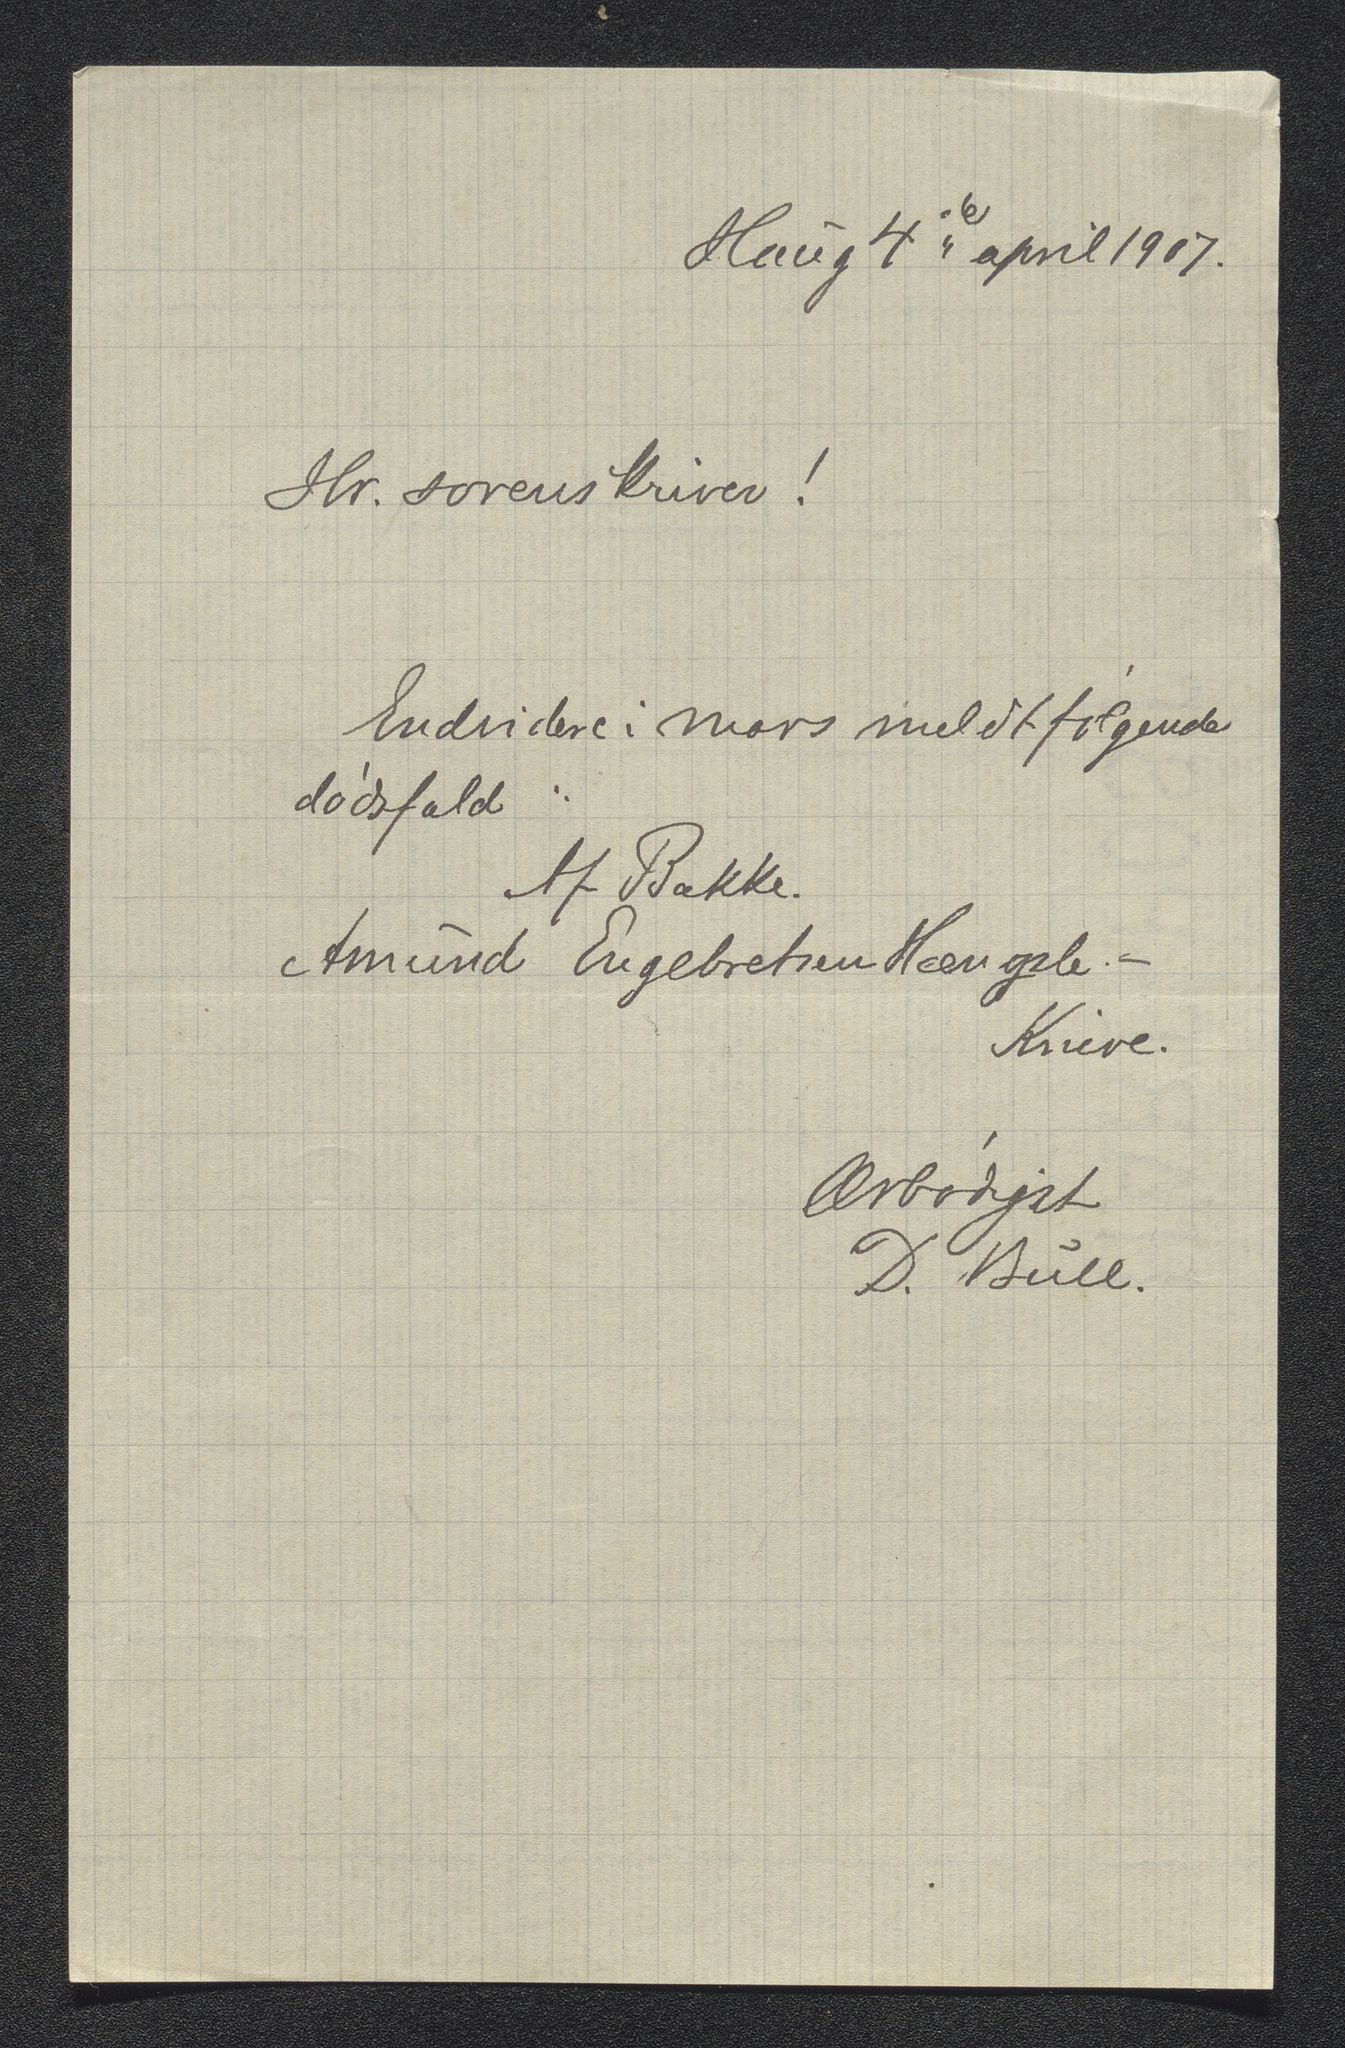 Haug 4de april 1907.
Hr. sorenskriver!
Endvidere i mars meldt følgende
dødsfald:
Af Bakke.
Amund Engebretsen Hængsle-
Knive.
Ærbødigst
D. Bull.